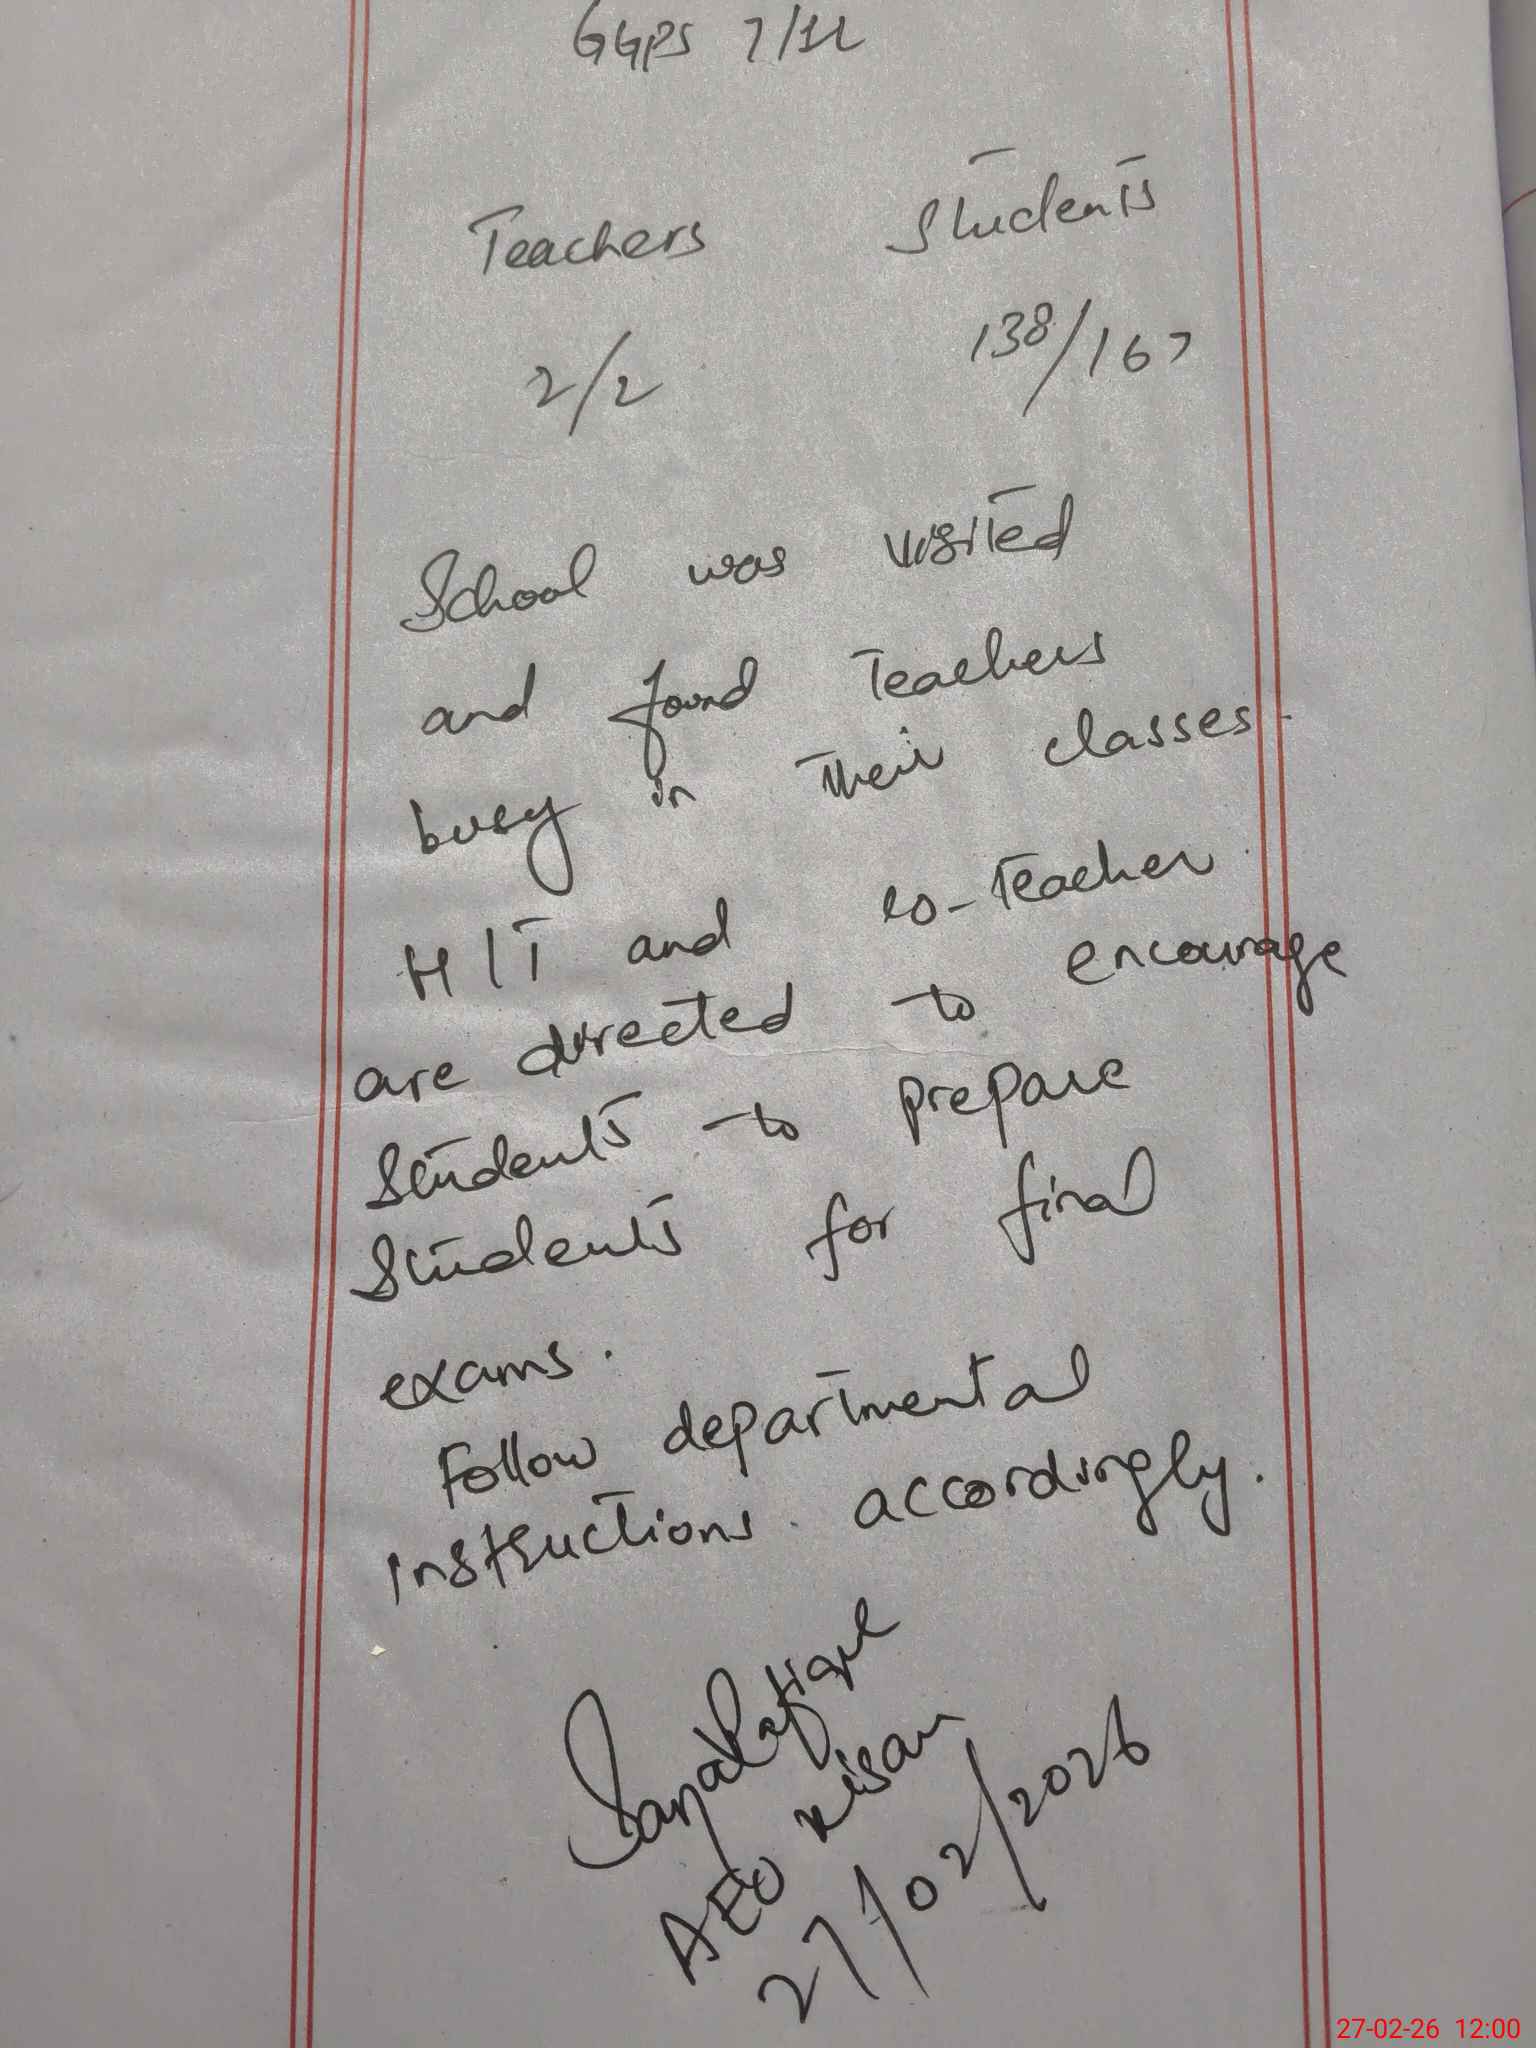 GGPS 7/1L
Teachers Students
2/2 138/167
School was visited
and found Teachers
busy in their classes.
H/T and co-Teacher
are directed to encourage
Students to prepare
Students for final
exams.
Follow departmental
instructions accordingly.
AEO
27/02/2026
27-02-26 12:00